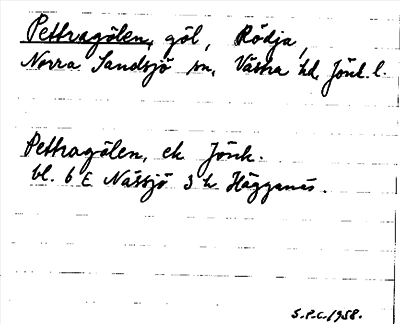 Pettragölen, göl, Rödja,
Norra Sandsjö sn, Västra hd, Jönk. l.
Pettragölen, ek Jönk.
bl. 6 E Nässjö 3 h Hägganäs.
S.P.C. 1958.